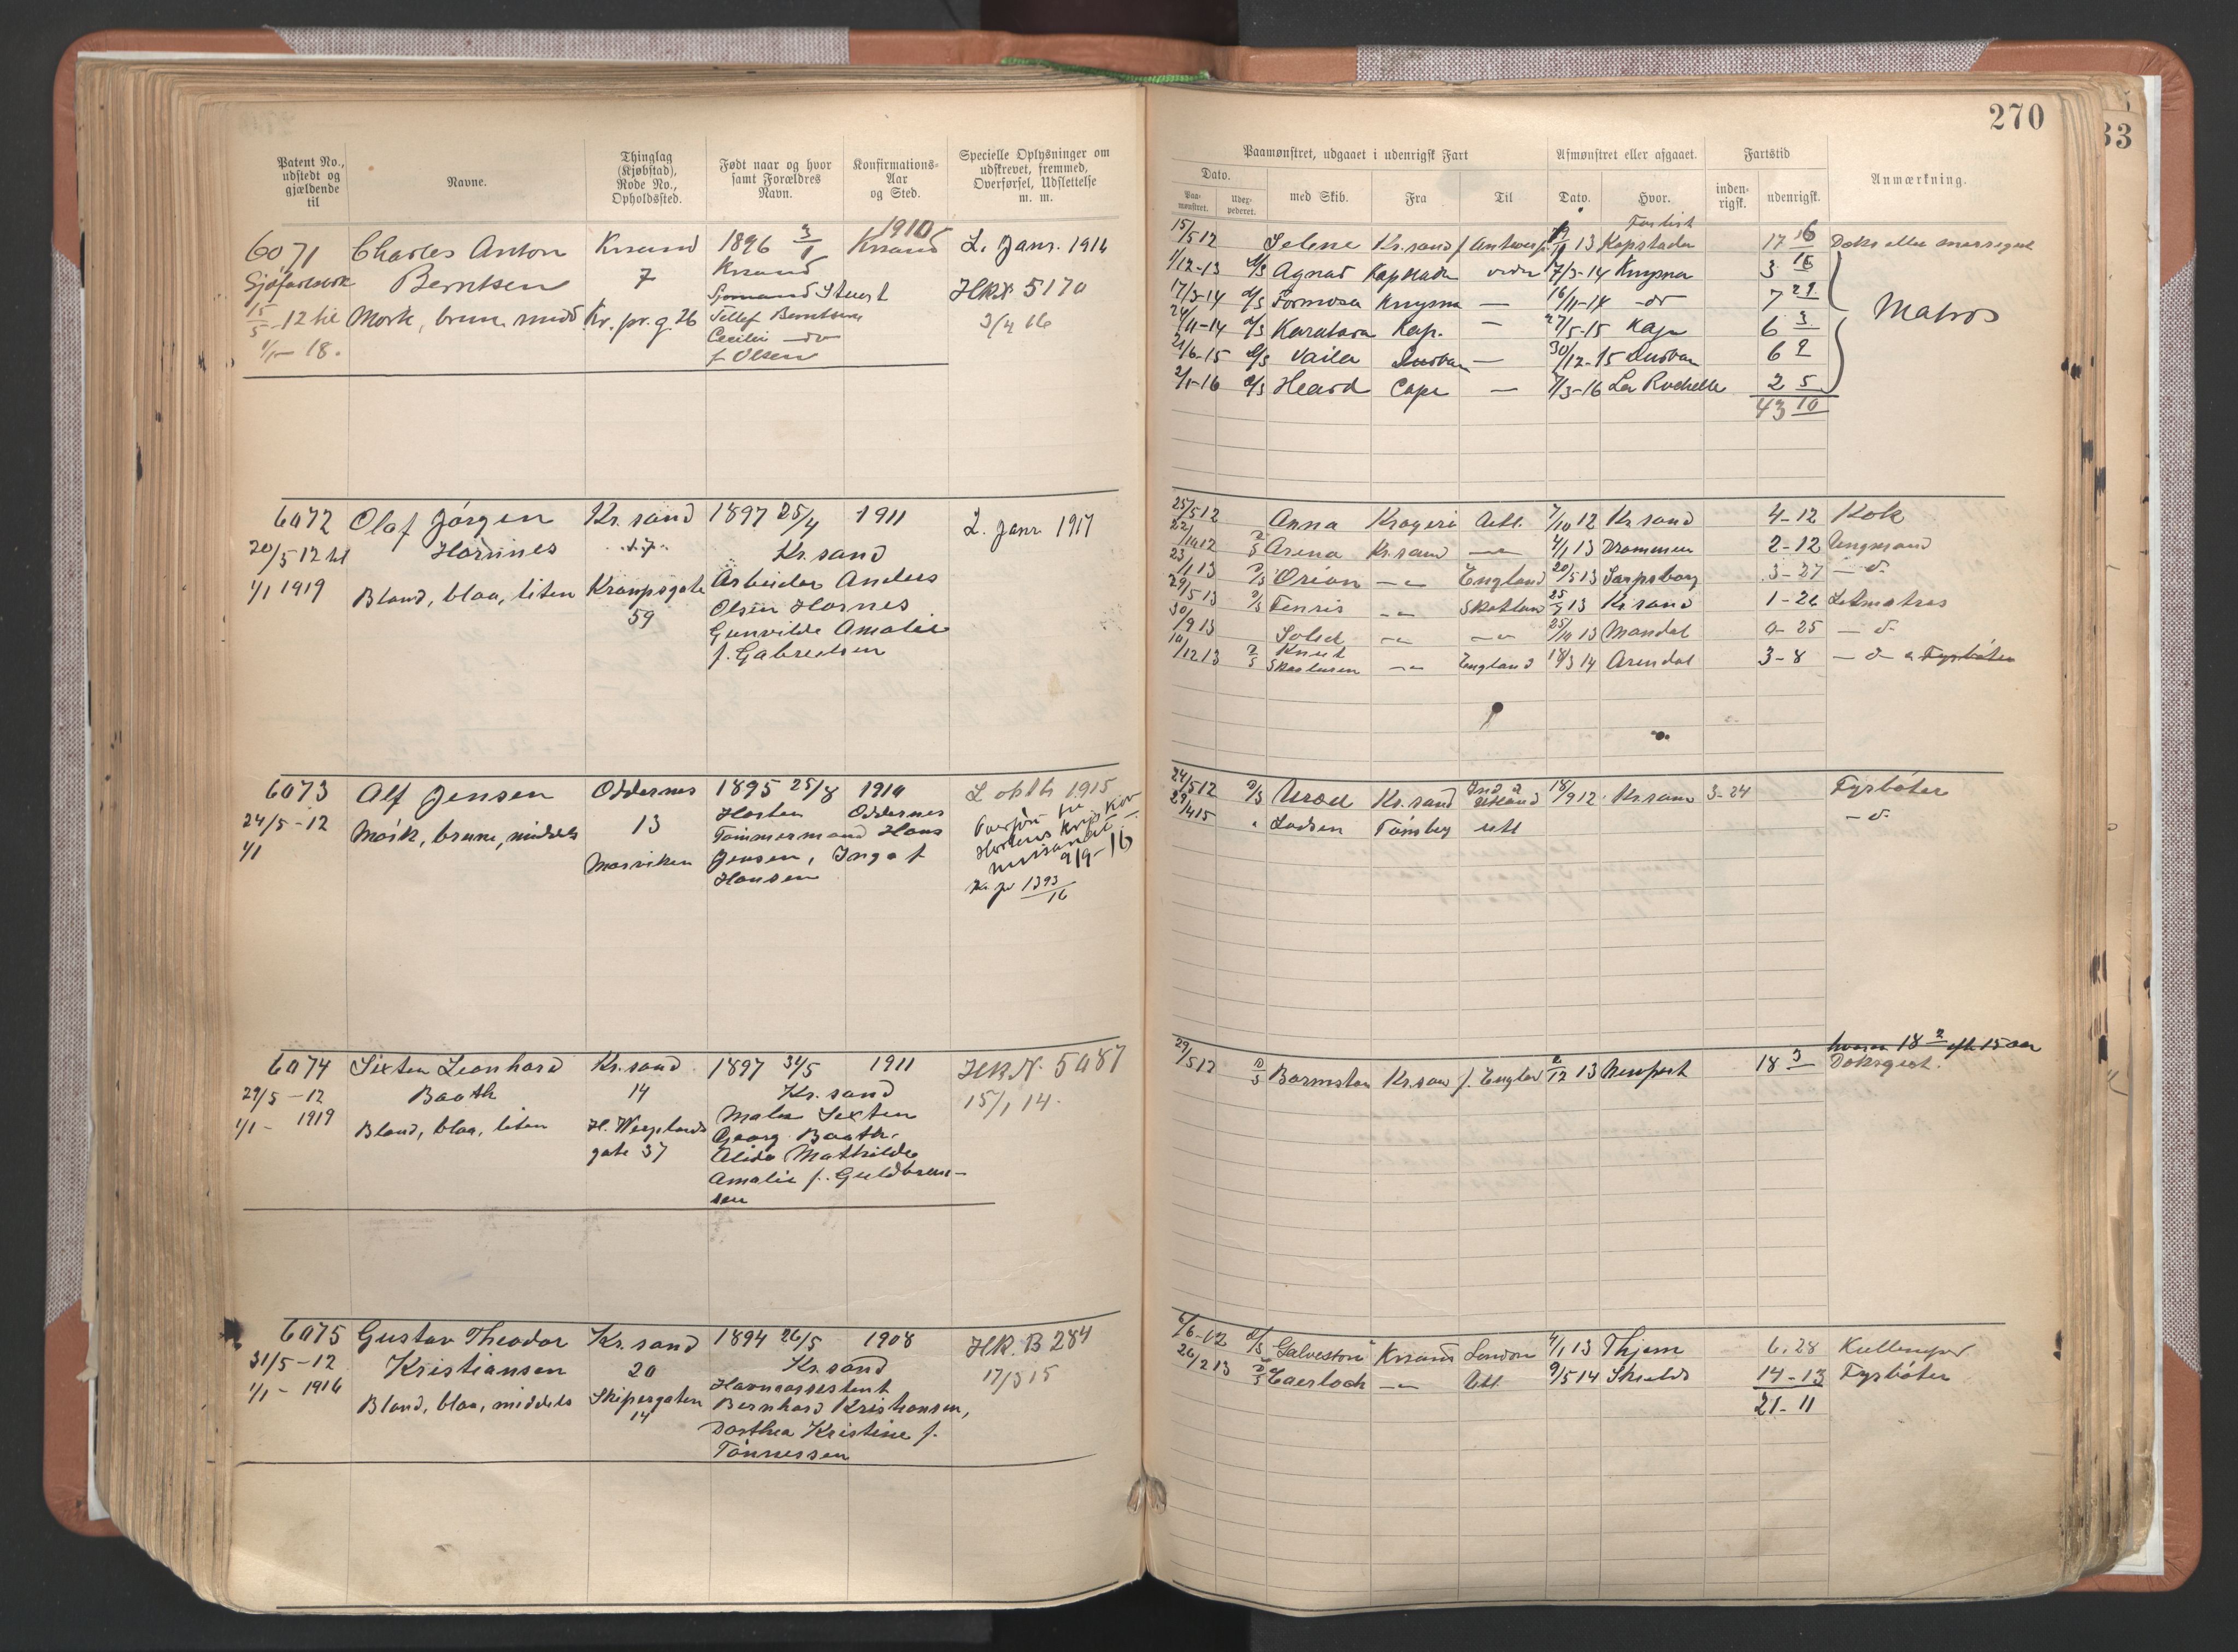 270
33
Patent No., udstedt og gjældende til
Navne.
Thinglag (Kjøbstad), Rode No., Opholdssted.
Født naar og hvor samt Forældres Navn.
Konfirmations-Aar og Sted.
Specielle Oplysninger om udskrevet, fremmed, Overførsel, Udslettelse m. m.
Paamønstret, udgaaet i udenrigsk Fart
Afmønstret eller afgaaet.
Fartstid
Anmærkning.
Dato.
Paamønstret.
Udexpederet.
med Skib.
Fra
Til
Dato.
Hvor.
indenrigsk.
udenrigsk.
6071 Charles Anton Krsand 1896 3/1 1910 Krsand L. Janr. 1916
Berntsen 7 Krsand HRN 5170
15/5-12 til Mørk, brune, midd Kr. pr. g. 26 Tellef Berntsen 3/4 16
1/1-18. Cecilie -do
f. Olsen
15/5 12 Selene Kr.sand f. Antwerp. 13 Kapstaden 17 16
Forlist
1/12-13 D/S Agnar Kapstadn 17/3-14 Knysna 3 16
17/3-14 D/S Formosa Knysna — 16/11-14 -do 7 29
Matros
24/11-14 D/S Karatara Kap. — 27/5-15 Kap 6 3
21/6-15 D/S Vaila Durban — 30/12-15 Durban 6 9
2/1-16 D/S Heard Cape — 7/3-16 La Rochelle 2 5
43 10
6072 Olaf Jørgen Kr.sand 1897 25/4 1911 L. Janr 1917
20/5-12 til Hornnes 17 Kr.sand
1/1 1919 Bland, blaa, liten Kronpsgate Arbeider Anders
59 Olsen Hornes
Gunvilde Amalie
f. Gabrielsen
25/5 12 Anna Kragerø Arth. 7/10 12 Kr sand 4-12 Kok
22/10 12 D/S Arena Kr.sand — 4/1 13 Drammen 2-12 Ungmand
23/1 13 D/S Orion — England 20/5 13 Sarpsborg 3-27 — d-
29/5 13 D/S Fenris — Skotland 25/7 13 Kr sand 1-26 Letmatros
30/9 13 Solid — — 25/10 13 Mandal 0-25 — d-
10/12 13 D/S Knut Skaaluren — England 18/3 14 Arendal 3-8 — d- & Fyrbøter
6073 Alf Jensen Oddernes 1895 25/8 1910 L opth 1915
24/5-12 Mørk, brune, middels 13 Horten Oddernes
1/1 Tømmermand Hans
Marviken Jensen, Inga f. 9/9-16
Hansen 1393/16
24/5 12 D/S Uræd Kr.sand Ind & Utland 18/9 12 Kr.sand 3-24 Fyrbøter
29/1415 Ladsen Tønsbg utl — d-
6074 Sixten Leonhard Kr.sand 1897 31/5 1911 HRN. 5087
29/5-12 Baath 14 Kr.sand 15/1 14.
1/1- 1919 Bland, blaa, liten H. Wergelands Maler Sixten
gate 37 Georg Baath,
Alida Mathilde
Amalie f. Guldbrand-
sen
29/5 12 D/S Barmston Kr.san f. Englan 2/12 13 Newport 18 3 Doksgut.
18 2 eft 15 aar
6075 Gustav Theodor Kr.sand 1894 26/5 1908 HR. B 284
31/5-12 Kristiansen 20 Kr.sand 17/5 15
1/1- 1916 Bland, blaa, middels Skipergaten Havnassistent
14 Bernhard Kristiansen,
Dorthea Kristine f.
Tønnessen
6/6-12 D/S Galveston Krsand London 4/1 13 Thjem 6.28 Kullemper
26/2 13 D/S Gaerloch — Utl. 9/5 14 Shields 14-13 Fyrbøter
21-11